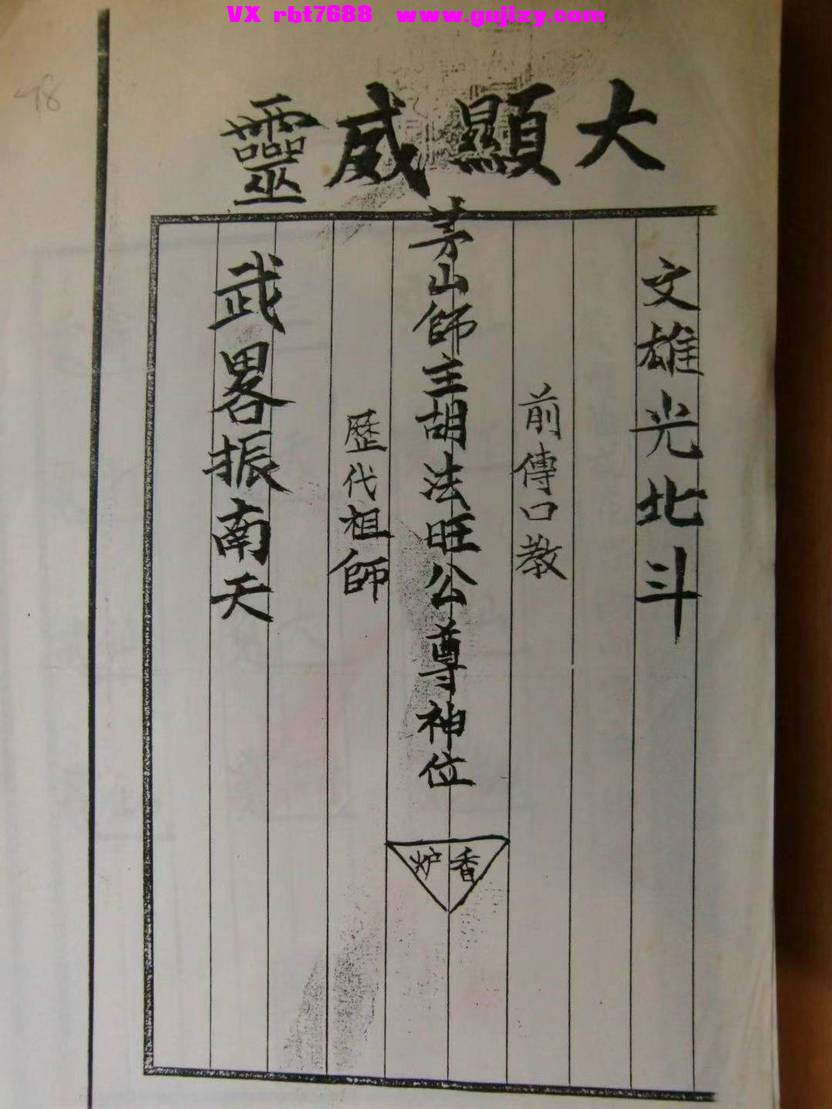 VX rbt7688 www.gujizy.com
78
大顯威靈
文雄光北斗
前傳口教
茅山師主胡法旺公尊神位
歷代祖師
武畧振南天
香炉